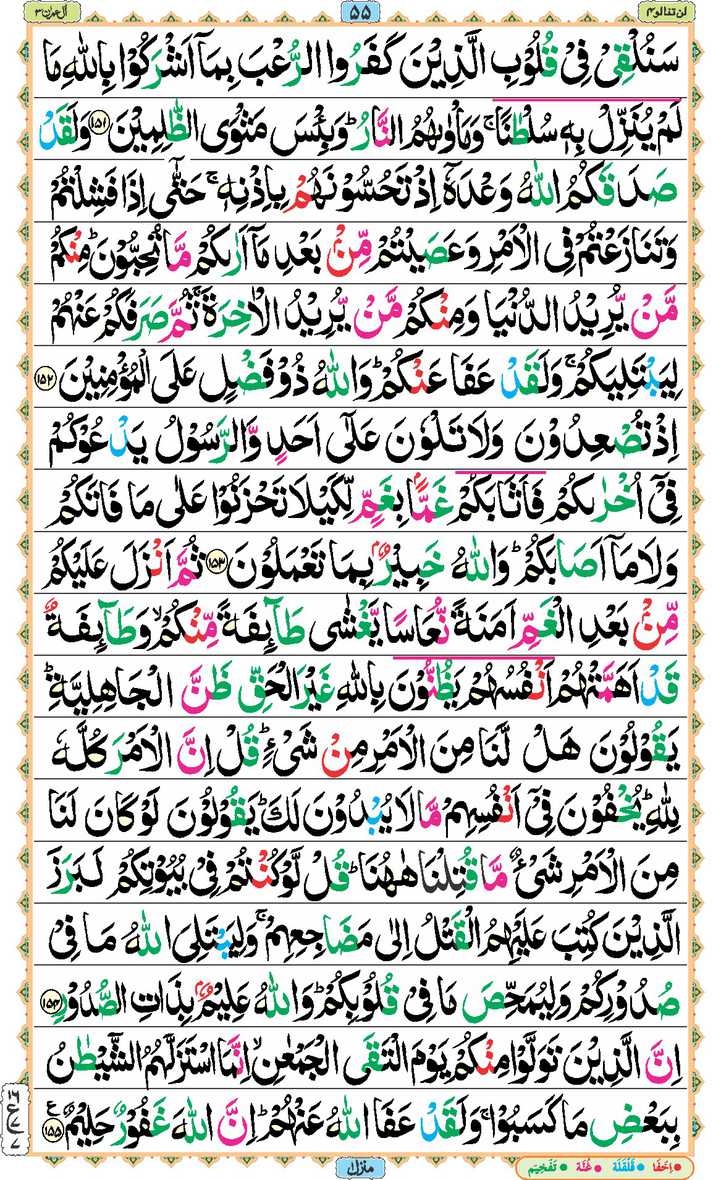 لن تنالوا ۴
۵۵
اٰل عمرٰن ۳
سَنُلْقِیْ فِیْ قُلُوْبِ الَّذِیْنَ كَفَرُوا الرُّعْبَ بِمَاۤ اَشْرَكُوْا بِاللّٰهِ مَا
لَمْ یُنَزِّلْ بِهٖ سُلْطٰنًا ۚ وَمَاْوٰىهُمُ النَّارُ ؕ وَبِئْسَ مَثْوَی الظّٰلِمِیْنَ ۝۱۵۱ وَلَقَدْ
صَدَقَكُمُ اللّٰهُ وَعْدَهٗۤ اِذْ تَحُسُّوْنَهُمْ بِاِذْنِهٖ ۚ حَتّٰۤی اِذَا فَشِلْتُمْ
وَتَنَازَعْتُمْ فِی الْاَمْرِ وَعَصَیْتُمْ مِّنْۢ بَعْدِ مَاۤ اَرٰىكُمْ مَّا تُحِبُّوْنَ ؕ مِنْكُمْ
مَّنْ یُّرِیْدُ الدُّنْیَا وَمِنْكُمْ مَّنْ یُّرِیْدُ الْاٰخِرَةَ ۚ ثُمَّ صَرَفَكُمْ عَنْهُمْ
لِیَبْتَلِیَكُمْ ۚ وَلَقَدْ عَفَا عَنْكُمْ ؕ وَاللّٰهُ ذُوْ فَضْلٍ عَلَی الْمُؤْمِنِیْنَ ۝۱۵۲
اِذْ تُصْعِدُوْنَ وَلَا تَلْوٗنَ عَلٰۤی اَحَدٍ وَّالرَّسُوْلُ یَدْعُوْكُمْ
فِیْۤ اُخْرٰىكُمْ فَاَثَابَكُمْ غَمًّۢا بِغَمٍّ لِّكَیْلَا تَحْزَنُوْا عَلٰی مَا فَاتَكُمْ
وَلَا مَاۤ اَصَابَكُمْ ؕ وَاللّٰهُ خَبِیْرٌۢ بِمَا تَعْمَلُوْنَ ۝۱۵۳ ثُمَّ اَنْزَلَ عَلَیْكُمْ
مِّنْۢ بَعْدِ الْغَمِّ اَمَنَةً نُّعَاسًا یَّغْشٰی طَآئِفَةً مِّنْكُمْ ۙ وَطَآئِفَةٌ
قَدْ اَهَمَّتْهُمْ اَنْفُسُهُمْ یَظُنُّوْنَ بِاللّٰهِ غَیْرَ الْحَقِّ ظَنَّ الْجَاهِلِیَّةِ ؕ
یَقُوْلُوْنَ هَلْ لَّنَا مِنَ الْاَمْرِ مِنْ شَیْءٍ ؕ قُلْ اِنَّ الْاَمْرَ كُلَّهٗ
لِلّٰهِ ؕ یُخْفُوْنَ فِیْۤ اَنْفُسِهِمْ مَّا لَا یُبْدُوْنَ لَكَ ؕ یَقُوْلُوْنَ لَوْ كَانَ لَنَا
مِنَ الْاَمْرِ شَیْءٌ مَّا قُتِلْنَا هٰهُنَا ؕ قُلْ لَّوْ كُنْتُمْ فِیْ بُیُوْتِكُمْ لَبَرَزَ
الَّذِیْنَ كُتِبَ عَلَیْهِمُ الْقَتْلُ اِلٰی مَضَاجِعِهِمْ ۚ وَلِیَبْتَلِیَ اللّٰهُ مَا فِیْ
صُدُوْرِكُمْ وَلِیُمَحِّصَ مَا فِیْ قُلُوْبِكُمْ ؕ وَاللّٰهُ عَلِیْمٌۢ بِذَاتِ الصُّدُوْرِ ۝۱۵۴
اِنَّ الَّذِیْنَ تَوَلَّوْا مِنْكُمْ یَوْمَ الْتَقَی الْجَمْعٰنِ ۙ اِنَّمَا اسْتَزَلَّهُمُ الشَّیْطٰنُ
بِبَعْضِ مَا كَسَبُوْا ۚ وَلَقَدْ عَفَا اللّٰهُ عَنْهُمْ ؕ اِنَّ اللّٰهَ غَفُوْرٌ حَلِیْمٌ ۝۱۵۵ ع
منزل ۱
اِخفَا قَلْقَلَة غُنَّة تَفْخِیْم